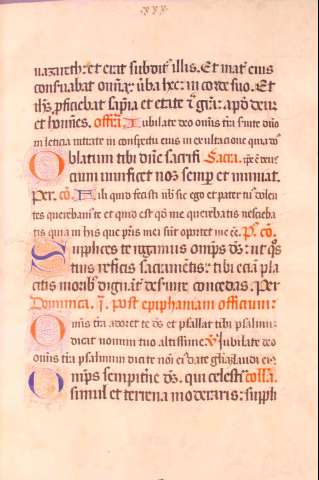 xxx.
nazareth: et erat subdit' illis. Et mat' eius
conseruabat omnia u'ba hec: in corde suo. Et
ih's p'ficiebat sapi'a et etate 't gr'a: apd' deu'
et homi'es. offr'. Iubilate deo om'is t'ra s'uite d'no
in leticia intrate in conspectu eius in exultatione quia d's
Oblatum tibi d'ne sacrifi' Sacra.
cium uiuificet nos semp' et muniat.
Per. co'. Fili quid fecisti nob' sic ego et pater tu' dolen
tes querebam' te et quid est q'd me querebatis nescieba
tis quia in his que p'ris mei su't oportet me e'e. P. co'.
Supplices te rogamus om'ps d's: ut q's
tuis reficis sacramentis: tibi etia' pla
citis morib' dignant' deseruire concedas. Per
Dominica. i. post epiphaniam officium:
Om'is t'ra adoret te d's et psallat tibi psalmu'
dicat nomini tuo altissime. Iubilate deo
om'is t'ra psalmum dicite no'i ei' date gl'iam laudi ei'.
Om'ps sempit'ne d's. qui celesti' coll'a.
simul et terrena moderaris: suppli